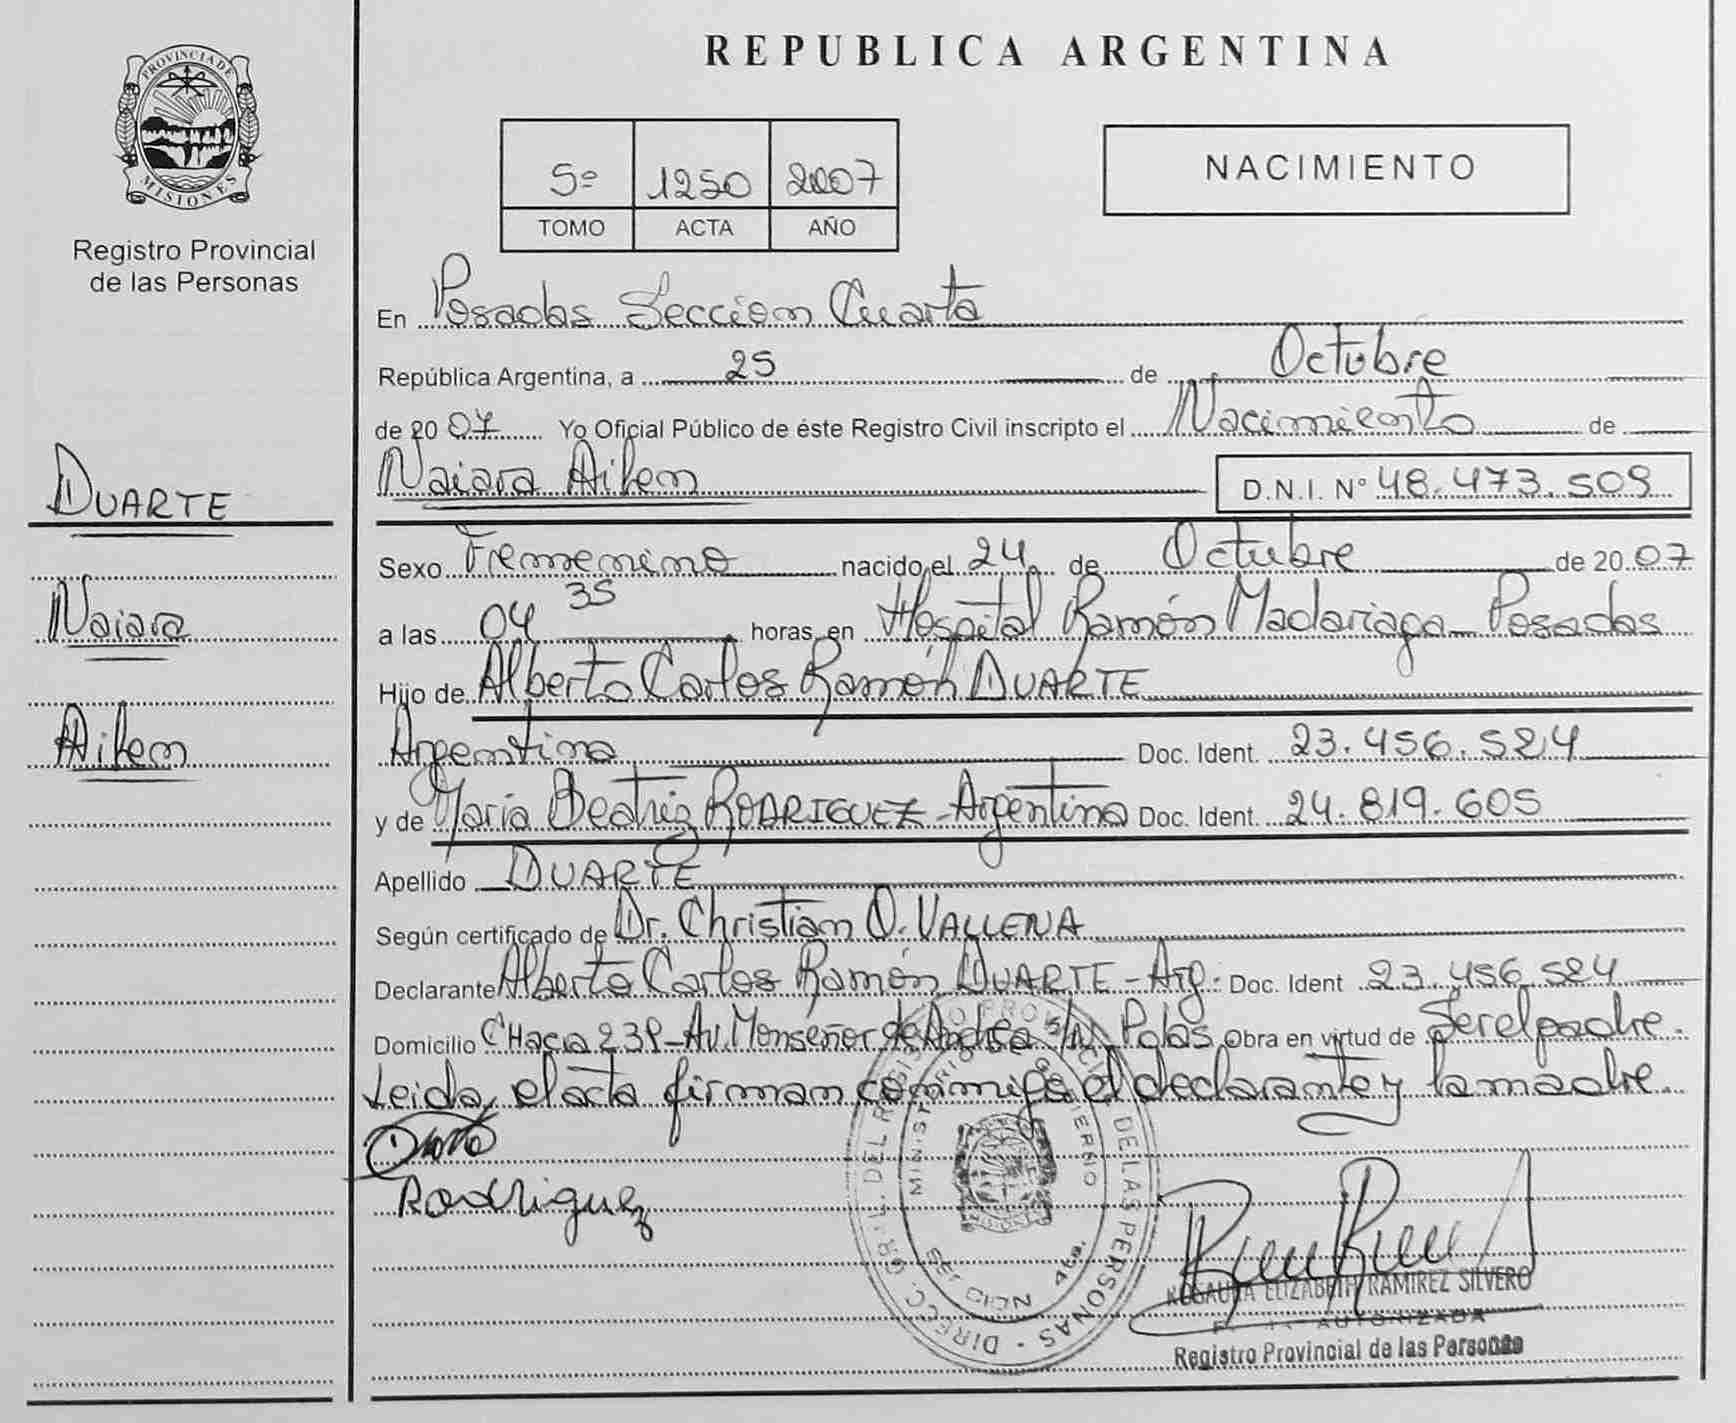 PROVINCIA DE
MISIONES
Registro Provincial
de las Personas
DUARTE
Naiara
Ailem
REPUBLICA ARGENTINA
5º 1250 2007
TOMO ACTA AÑO
NACIMIENTO
En Posadas Seccion Cuarta
República Argentina, a 25 de Octubre
de 2007 Yo Oficial Público de éste Registro Civil inscripto el Nacimiento de
Naiara Ailem D.N.I. Nº 48.473.509
Sexo Femenino nacido el 24 de Octubre de 2007
a las 04 35 horas, en Hospital Ramón Madariaga - Posadas
Hijo de Alberto Carlos Ramón DUARTE
Argentina Doc. Ident. 23.456.524
y de María Beatriz RODRIGUEZ - Argentina Doc. Ident. 24.819.605
Apellido DUARTE
Según certificado de Dr. Christian O. VALLENA
Declarante Alberto Carlos Ramón DUARTE - Arg. Doc. Ident 23.456.524
Domicilio CHacra 239 - Av. Monseñor de Andrea S/N Pdas Obra en virtud de Ser el padre.
Leida, el acta firman conmigo el declarante y la madre.
Duarte
Rodriguez
DIRECC. GRAL. DEL REGISTRO PROVINCIAL DE LAS PERSONAS
MINISTERIO DE GOBIERNO
SECCION 4ta.
ROSAURA ELIZABETH RAMIREZ SILVERO
AUTORIZADA
Registro Provincial de las Personas